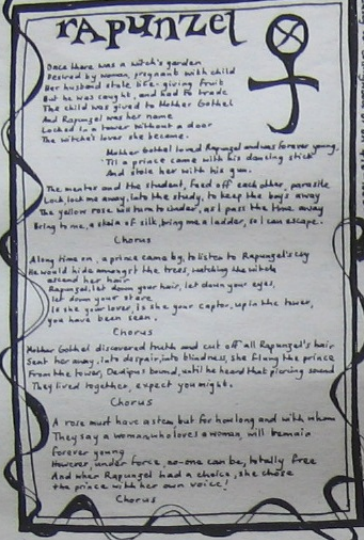 rapunzel
Once there was a witch's garden
Desired by woman, pregnant with child
Her husband stole life-giving fruit
But he was caught, and had to trade
The child was gived to Mother Gothel
And Rapunzel was her name
Locked in a tower without a door
The witch's lover she became.
Mother Gothel loved Rapunzel and was forever young.
'Til a prince came with his dancing stick
And stole her with his gun.
The mentor and the student, feed off each other, parasite
Lock, lock me away, into the study, to keep the boys away
The yellow rose will turn to cinder, as I pass the time away
Bring to me, a skein of silk, bring me a ladder, so I can escape.
Chorus
Along time on, a prince came by, to listen to Rapunzel's cry
He would hide amongst the trees, watching the witch
ascend her hair
Rapunzel, let down your hair, let down your eyes,
let down your stare
Is she your lover, is she your captor, up in the tower,
you have been seen.
Chorus
Mother Gothel discovered truth and cut off all Rapunzel's hair
Sent her away, into despair, into blindness, she flung the prince
From the tower, Oedipus bound, until he heard that piercing sound
They lived together, expect you might.
Chorus
A rose must have a stem, but for how long and with whom
They say a woman who loves a woman, will remain
forever young
However, under force, no-one can be, totally free
And when Rapunzel had a choice, she chose
the prince with her own voice!
Chorus